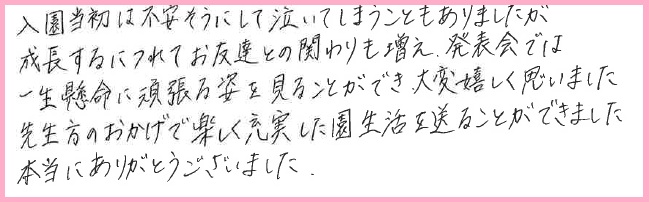 入園当初は不安そうにして泣いてしまうこともありましたが
成長するにつれてお友達との関わりも増え、発表会では
一生懸命に頑張る姿を見ることができ大変嬉しく思いました
先生方のおかげで楽しく充実した園生活を送ることができました
本当にありがとうございました.